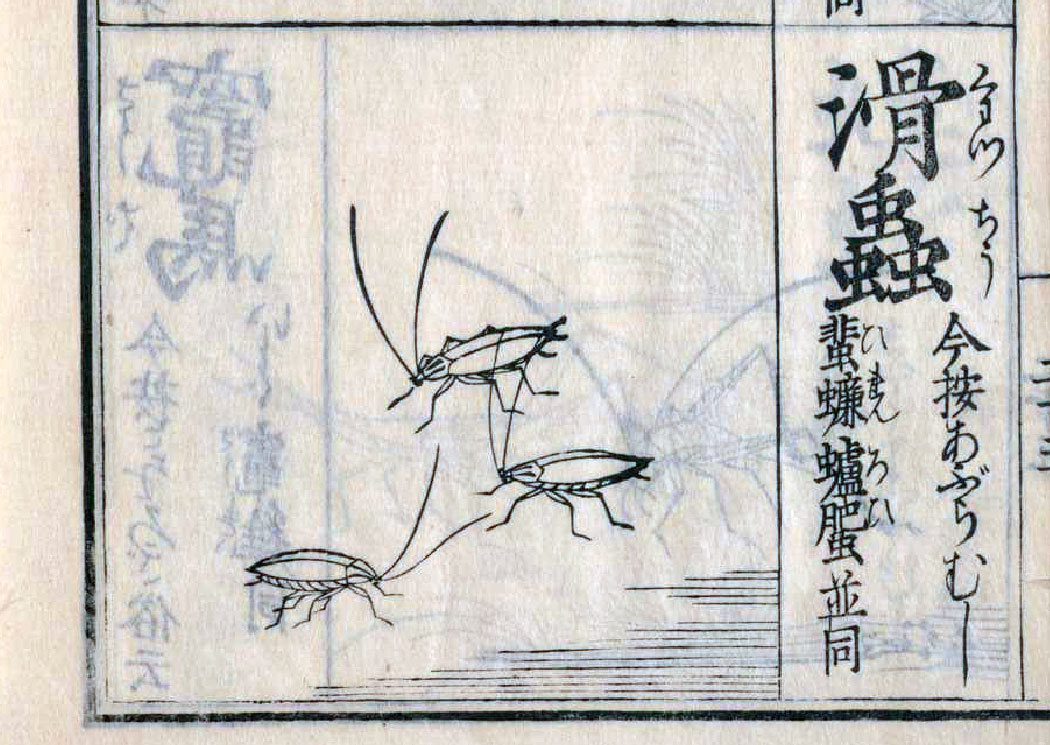 同
滑蟲
ちう
今按あぶらむし
蜚蠊蠦蜰並同
ひれん ろひ